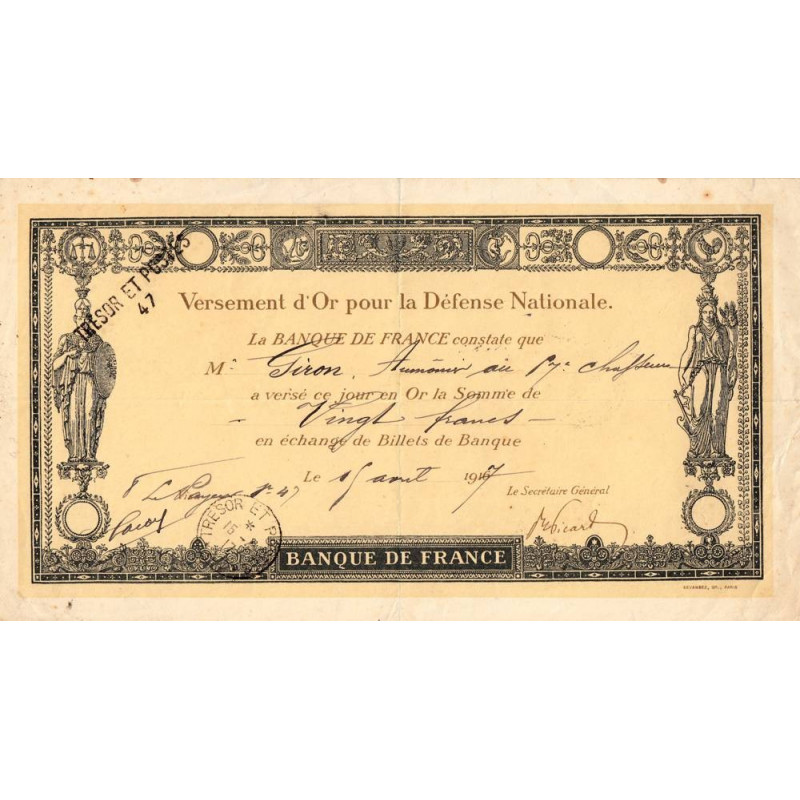 TRESOR ET POSTES
47
Versement d'Or pour la Défense Nationale.
La BANQUE DE FRANCE constate que
Mr Giron, Aumônier au 17e chasseurs
a versé ce jour en Or la Somme de
- Vingt francs -
en échange de Billets de Banque
Le 15 avril 1917
Le Secrétaire Général
Picard
Le Payeur 47
TRESOR ET P
15
BANQUE DE FRANCE
DEVAMBEZ, GR., PARIS